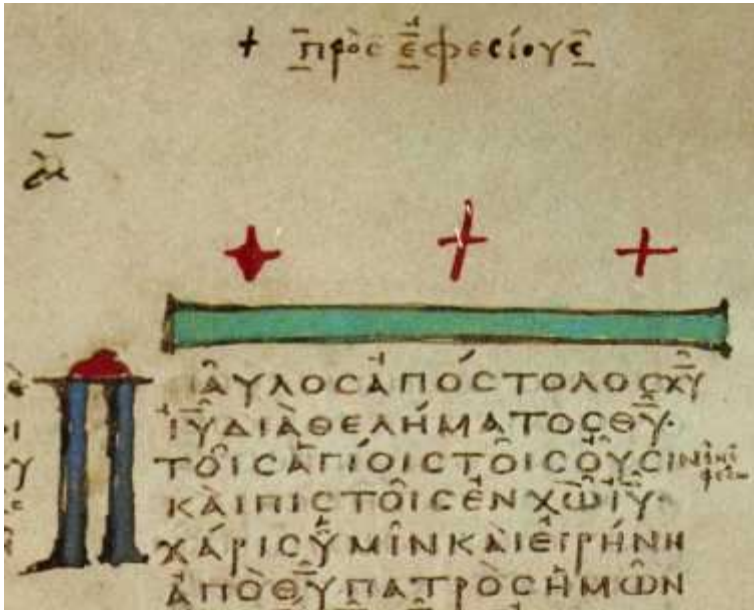 + πρὸς ἐφεσίους
ΠΑΥΛΟϹΑΠΟϹΤΟΛΟϹΧ̅Υ̅
Ι̅Υ̅ΔΙΑΘΕΛΗΜΑΤΟϹΘ̅Υ̅·
ΤΟΙϹΑΓΙΟΙϹΤΟΙϹΟΥϹΙΝ
ΚΑΙΠΙϹΤΟΙϹΕΝΧ̅Ω̅Ι̅Υ̅·
ΧΑΡΙϹΥΜΙΝΚΑΙΕΙΡΗΝΗ
ΑΠΟΘ̅Υ̅ΠΑΤΡΟϹΗΜΩΝ